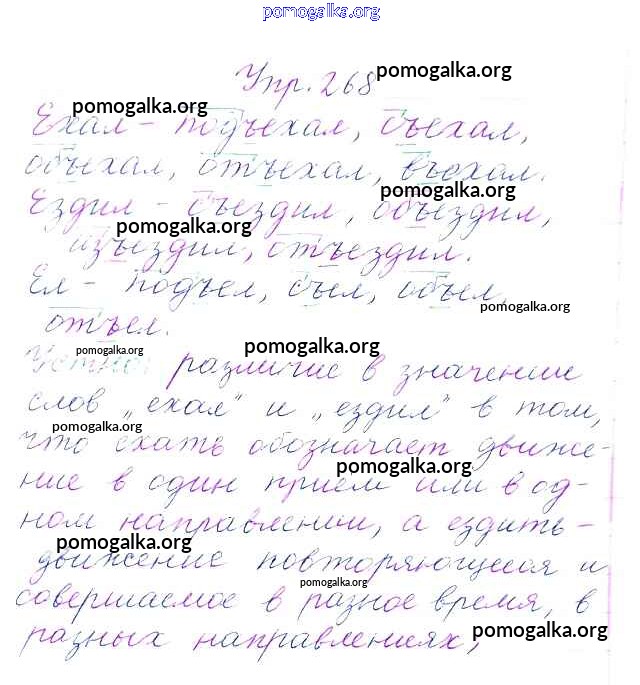 pomogalka.org
Упр. 268 pomogalka.org
pomogalka.org
Ехал – подъехал, съехал,
объехал, отъехал, въехал.
pomogalka.org
Ездил – съездил, объездил,
pomogalka.org
изъездил, отъездил.
Ел – подъел, съел, объел,
pomogalka.org
отъел.
pomogalka.org pomogalka.org
Устно: различие в значении
слов „ехал" и „ездил" в том,
pomogalka.org
что ехать обозначает движе-
pomogalka.org
ние в один прием или в од-
ном направлении, а ездить –
pomogalka.org
движение повторяющееся и
pomogalka.org
совершаемое в разное время, в
pomogalka.org
разных направлениях,